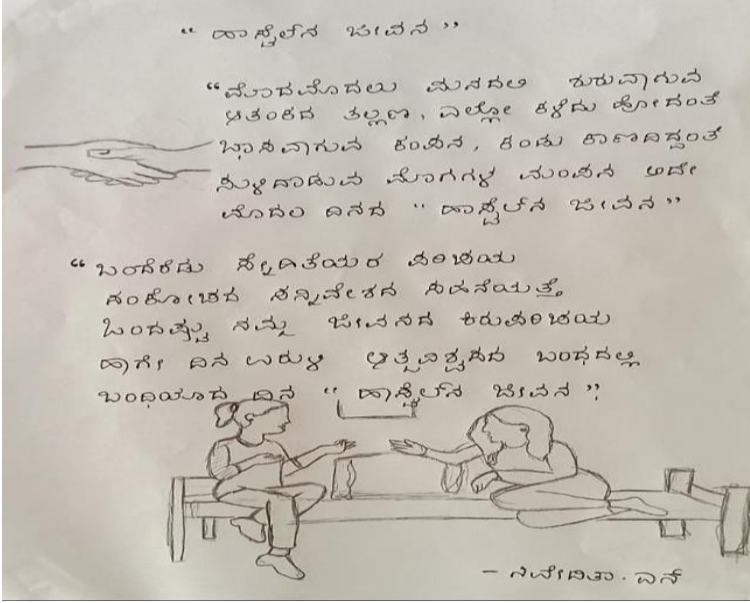 “ ಹಾಸ್ಟೆಲ್‌ನ ಜೀವನ ”
“ಮೊದಮೊದಲು ಮನದಲಿ ಶುರುವಾಗುವ
ಆತಂಕದ ತಲ್ಲಣ, ಎಲ್ಲೋ ಕಳೆದು ಹೋದಂತೆ
ಭಾಸವಾಗುವ ಕಂಪನ, ಕಂಡು ಕಾಣದಿದ್ದಂತೆ
ಸುಳಿದಾಡುವ ಮೊಗಗಳ ಮಂಥನ ಅದೇ
ಮೊದಲ ದಿನದ “ ಹಾಸ್ಟೆಲ್‌ನ ಜೀವನ ”
“ ಒಂದೆರೆಡು ಸ್ನೇಹಿತೆಯರ ಪರಿಚಯ
ಸಂಕೋಚದ ಸನ್ನಿವೇಶದ ಸಹನೆಯತ್ತ
ಒಂದಷ್ಟು ನಮ್ಮ ಜೀವನದ ಕಿರುಪರಿಚಯ
ಹಾಗೇ ದಿನ ಉರುಳಿ ಬಂಧದಲ್ಲಿ
ಬಂಧಿಯಾದ ದಿನ “ ಹಾಸ್ಟೆಲ್‌ನ ಜೀವನ ”
– ನಿವೇದಿತಾ. ಎನ್